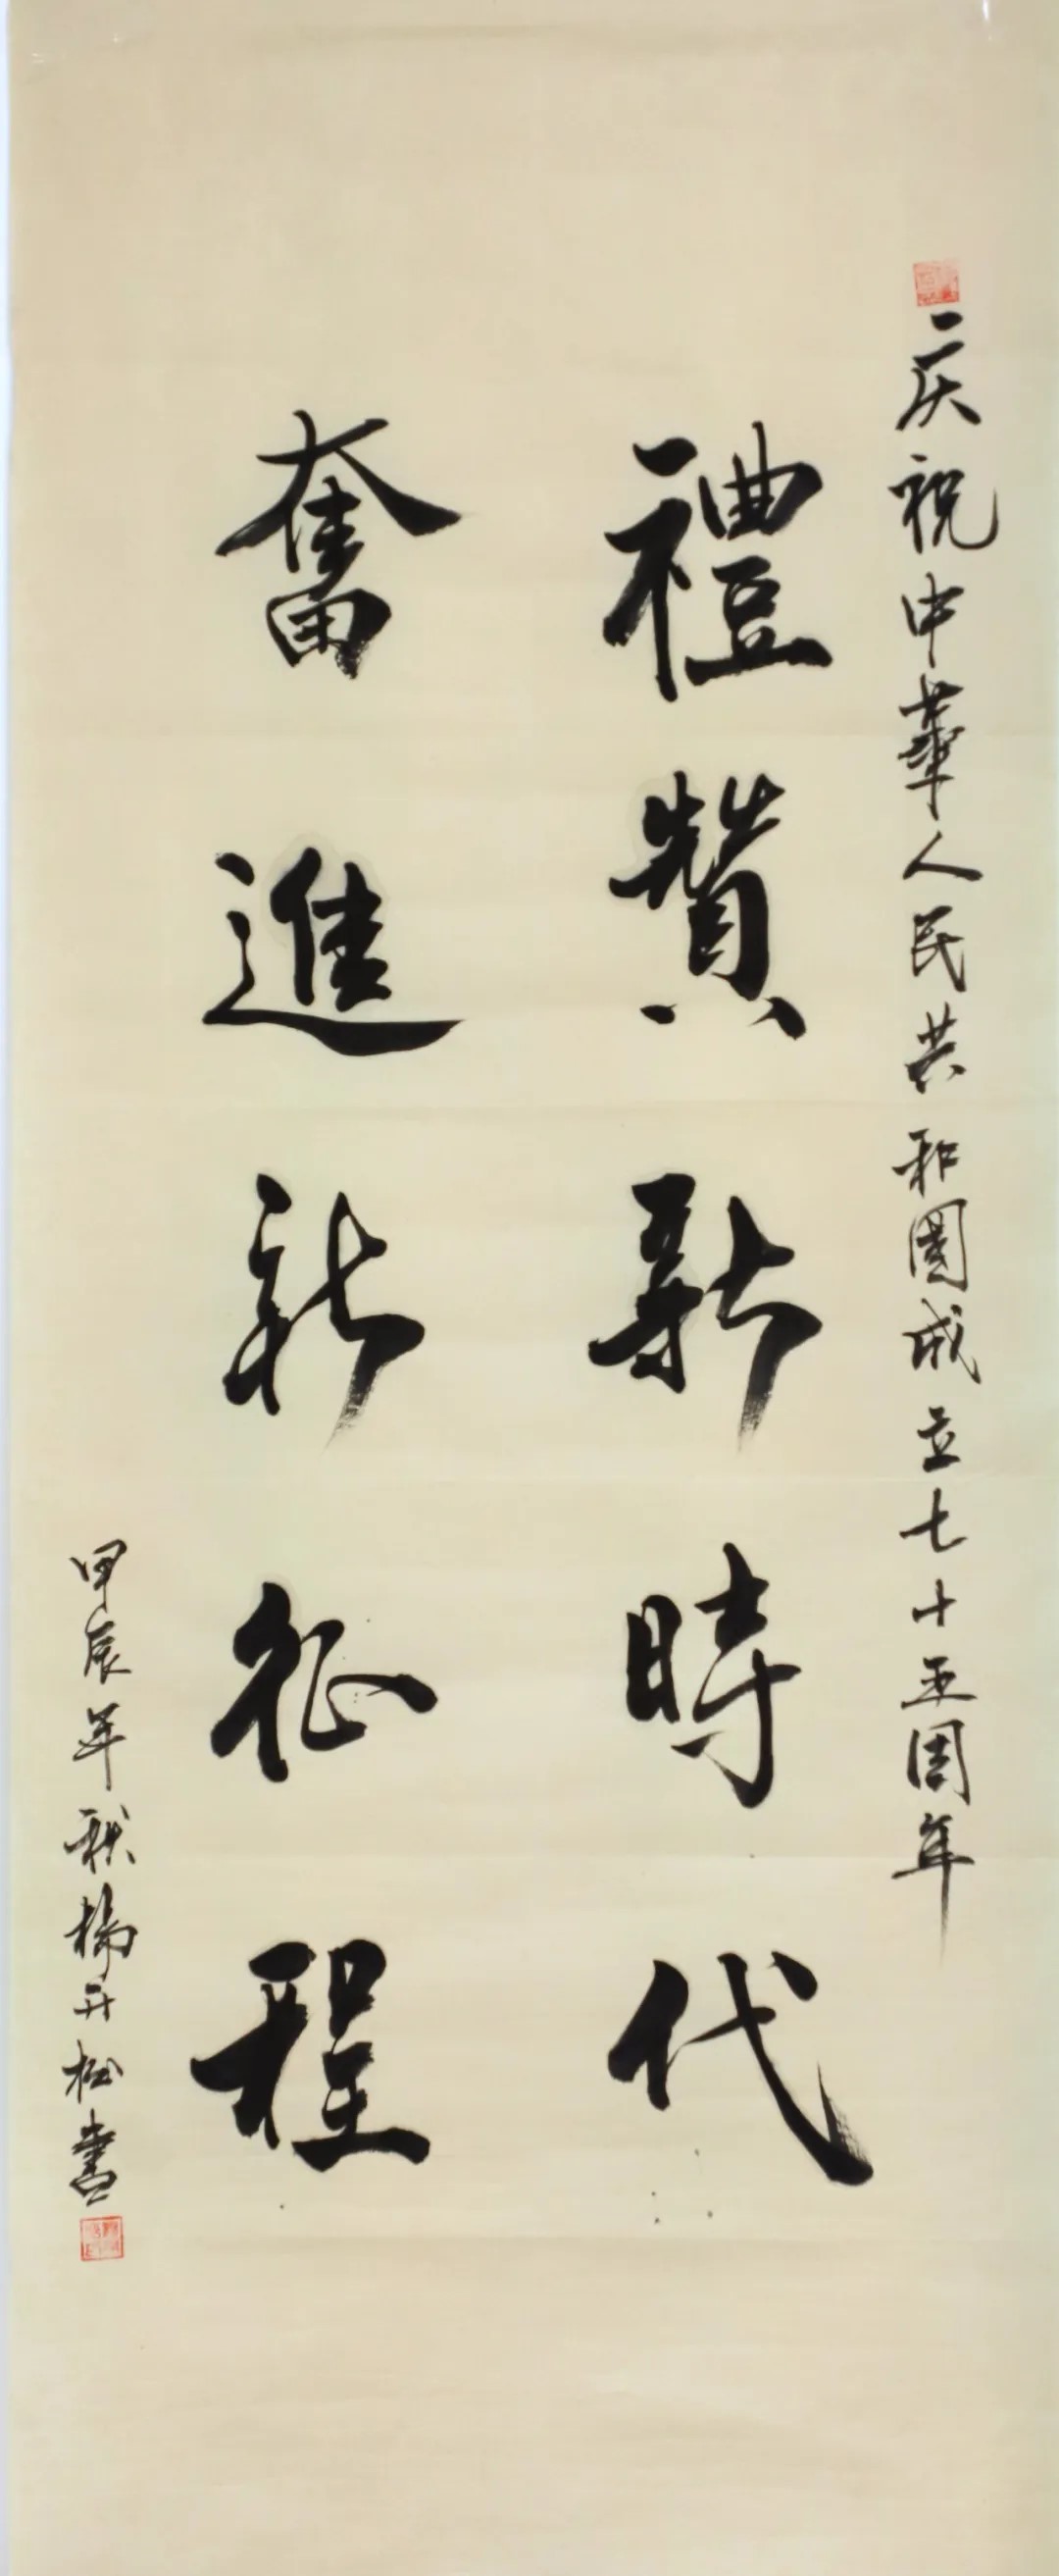 庆祝中華人民共和國成立七十五周年
禮贊新時代
奮進新征程
甲辰年秋楊升松書